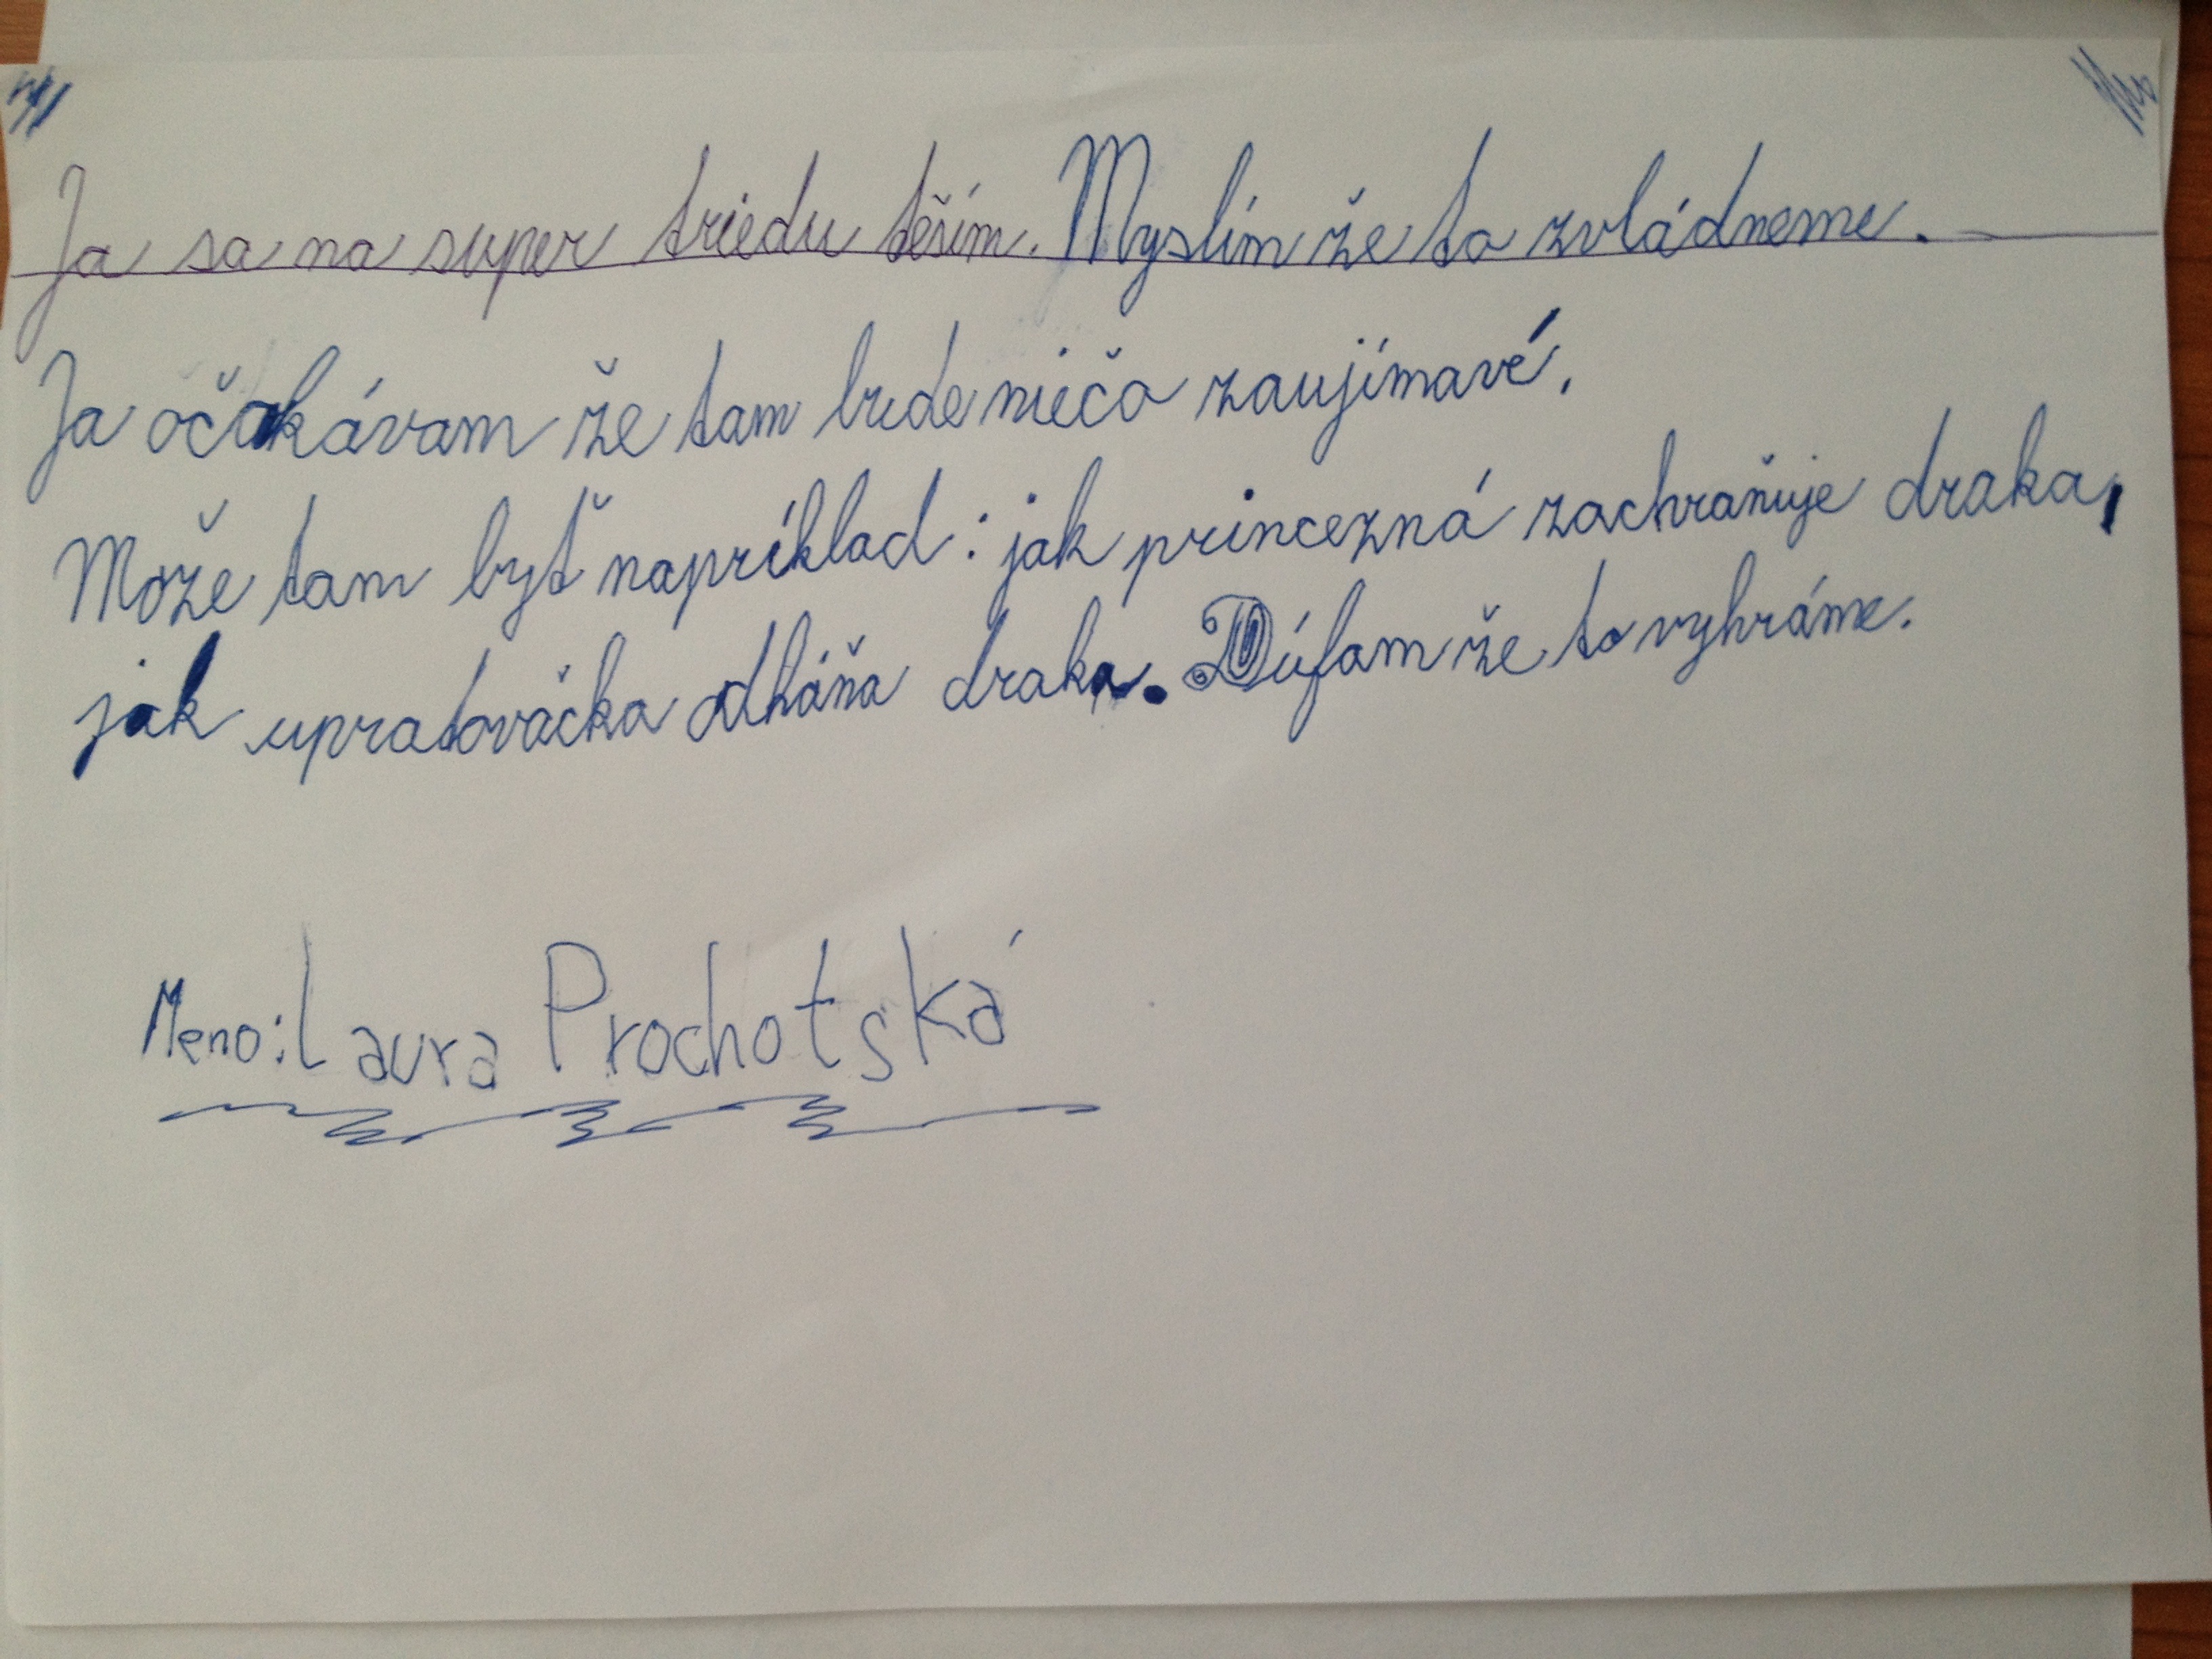 Ja sa na super triedu těším. Myslím že to zvládneme.
Ja očakávam že tam bude niečo zaujímavé.
Može tam byť napríklad: jak princezná zachraňuje draka,
jak upratovačka dháňa draka. Dúfam že to vyhráme.
Meno: Laura Prochotská